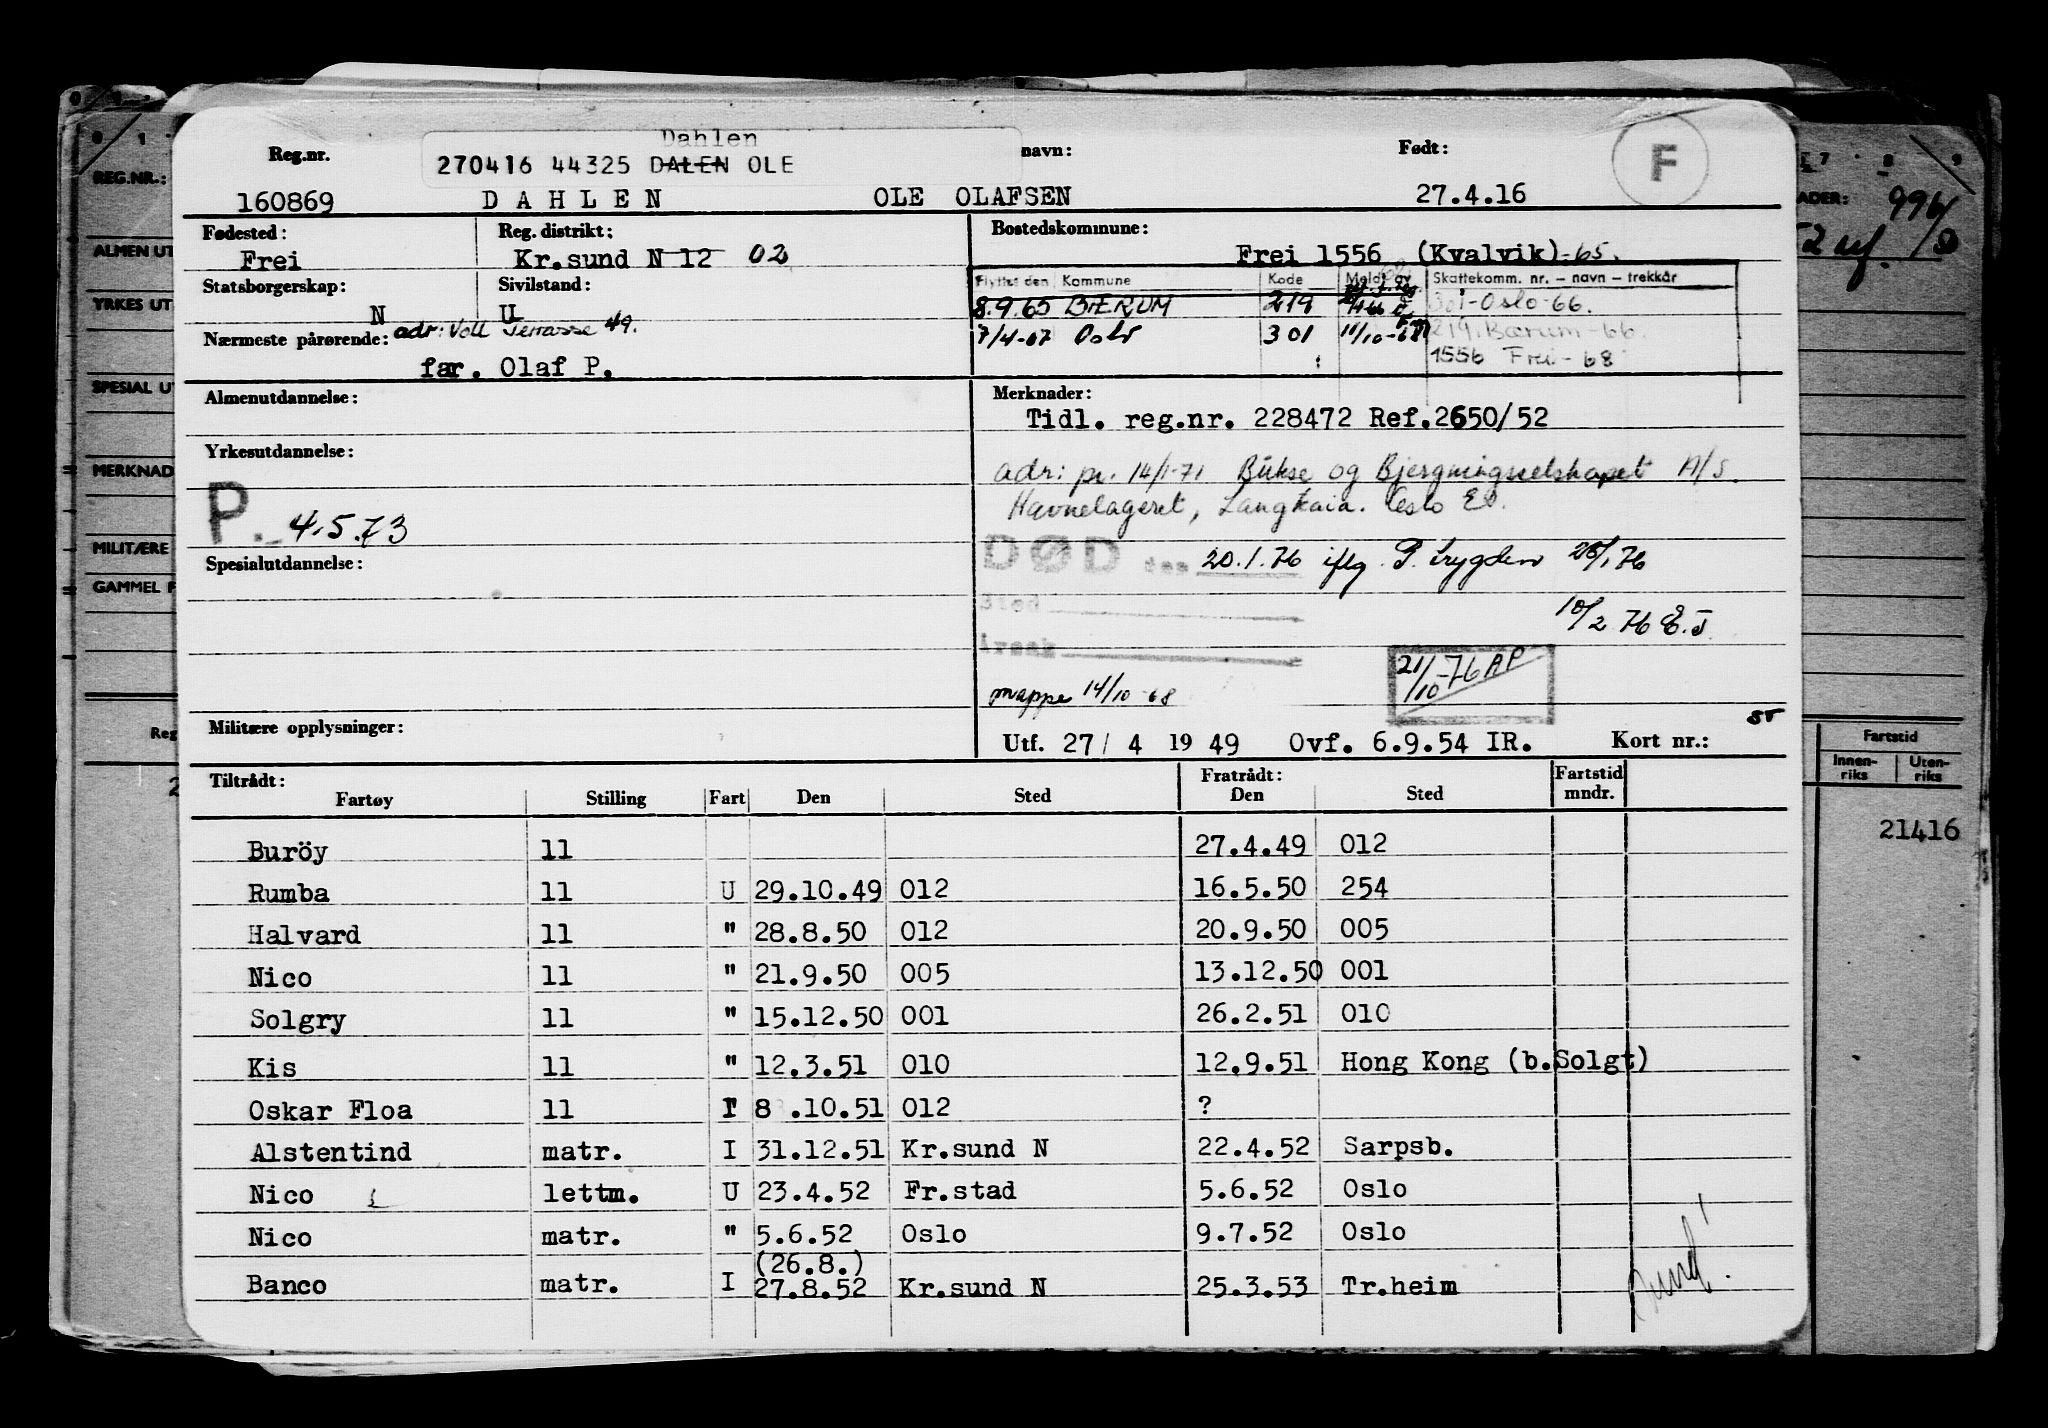 Dahlen
Reg.nr. 270416 44325 DALEN OLE navn: Født: F
160869 DAHLEN OLE OLAFSEN 27.4.16
Fødested: Reg. distrikt: Bostedskommune:
Frei Kr.sund N 12 02 Frei 1556 (Kvalvik) -65.
Statsborgerskap: Sivilstand: Flyttet den Kommune Kode Meldt av Skattekomm. nr. – navn – trekkår
N U 8.9.65 BÆRUM 219 301-Oslo-66.
Nærmeste pårørende: adr: Voll Terrasse 49. 7/4-67 Oslo 301 11/10-68 219. Bærum-66.
1556 Frei-68
far. Olaf P.
Almenutdannelse: Merknader:
Tidl. reg.nr. 228472 Ref.2650/52
Yrkesutdannelse:
adr: pr. 14/1-71 Bukse og Bjergningsselskapet A/S.
P. 4.5.73 Havnelageret, Langkaia. Oslo
Spesialutdannelse: DØD den 20.1.76 iflg. 28/1 76
Sted
10/2 76 E.J.
Årsak
21/10-76 AP
mappe 14/10-68
Militære opplysninger: ST
Utf. 27/4 1949 Ovf. 6.9.54 IR. Kort nr.:
Tiltrådt: Fratrådt: Fartstid
Fartøy Stilling Fart Den Sted Den Sted mndr.
Buröy ll 27.4.49 012
Rumba ll U 29.10.49 012 16.5.50 254
Halvard ll " 28.8.50 012 20.9.50 005
Nico ll " 21.9.50 005 13.12.50 001
Solgry ll " 15.12.50 001 26.2.51 010
Kis ll " 12.3.51 010 12.9.51 Hong Kong (b.Solgt)
Oskar Floa ll I 8 .10.51 012 ?
Alstentind matr. I 31.12.51 Kr.sund N 22.4.52 Sarpsb.
Nico lettm. U 23.4.52 Fr.stad 5.6.52 Oslo
Nico matr. " 5.6.52 Oslo 9.7.52 Oslo
(26.8.)
Banco matr. I 27.8.52 Kr.sund N 25.3.53 Tr.heim
REG.NR.:
ALMEN UT
YRKES UT
SPESIAL UT
MERKNAD
MILITÆRE
GAMMEL F
Reg
7 8 9
ADER:
Fartstid
Innen-riks Uten-riks
21416